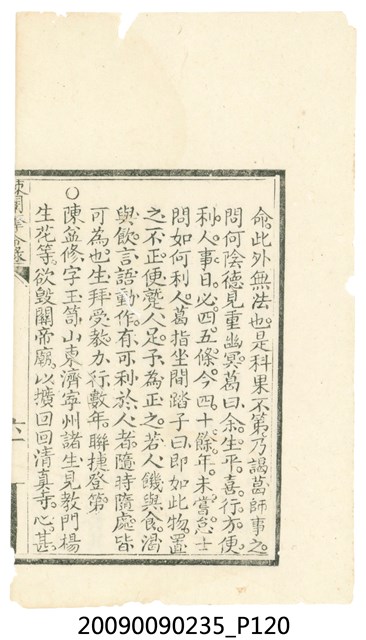 命。此外無法也。是科果不第。乃謁葛師事之。
問何陰德見重幽冥。葛曰。余生平喜行方便
利人事。日必四五條。今四十餘年。未嘗怠。士
問如何利人。葛指坐間踏子曰。即如此物置
之不正。便蹙人足。予為正之。若人饑與食。渴
與飲。言語動作。有可利於人者。隨時隨處皆
可為也。生拜受教。力行數年。聯捷登第
○陳益修字玉笥。山東濟寧州諸生。見教門楊
生花等。欲毀關帝廟。以擴回回清真寺。心甚
20090090235_P120